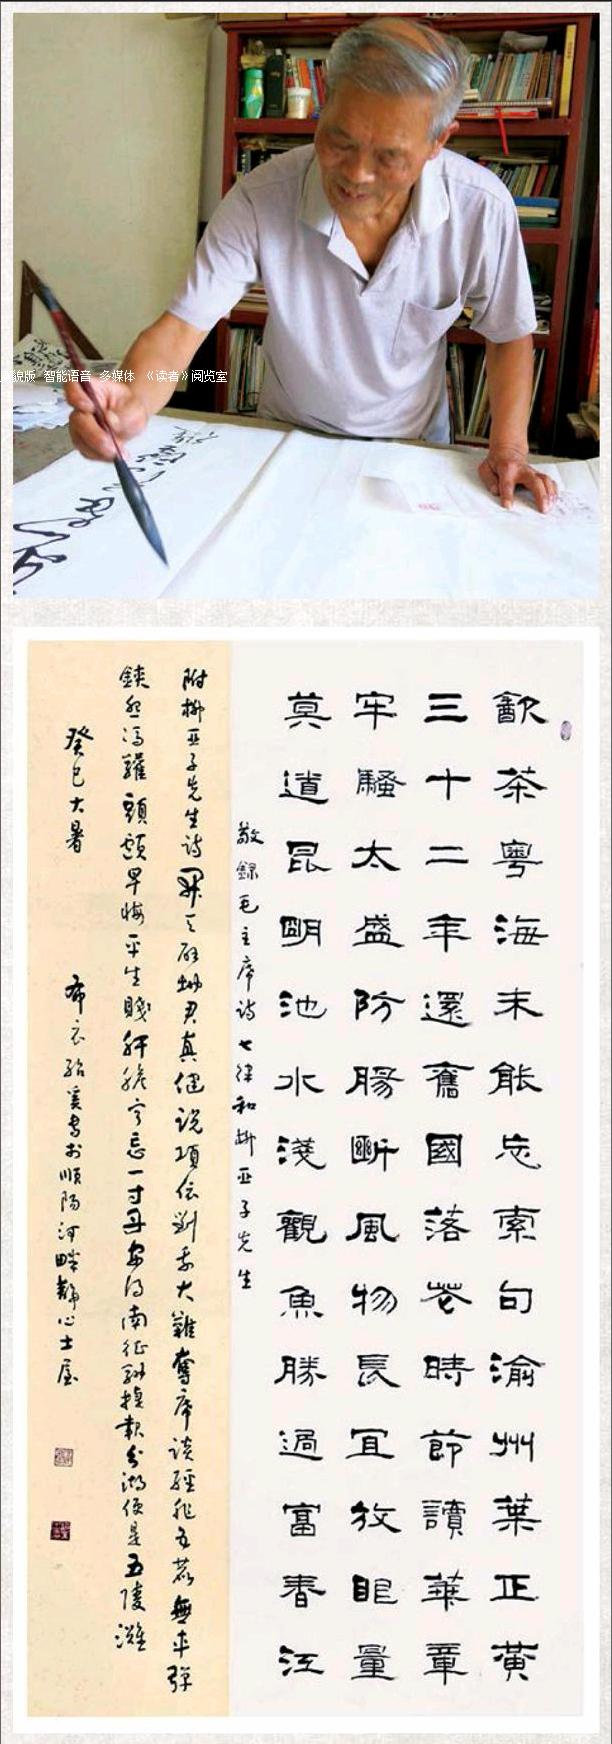 貌版 智能语音 多媒体 《读者》阅览室
㱃茶粵海未能忘索句渝州葉正黃
三十二年還舊國落花時節讀華章
牢騷太盛防腸斷風物長宜放眼量
莫道昆明池水淺觀魚勝過富春江
敬錄毛主席詩七律和柳亞子先生
附柳亞子先生詩開天闢地君真健說項依劉我大難奪席談經非五鹿無車彈
鋏怨馮驩頭顱早悔平生賤肝膽寧忘一寸丹安得南征馳捷報分湖便是五陵灘
癸巳大暑
布衣 書於順陽河畔靜心土屋